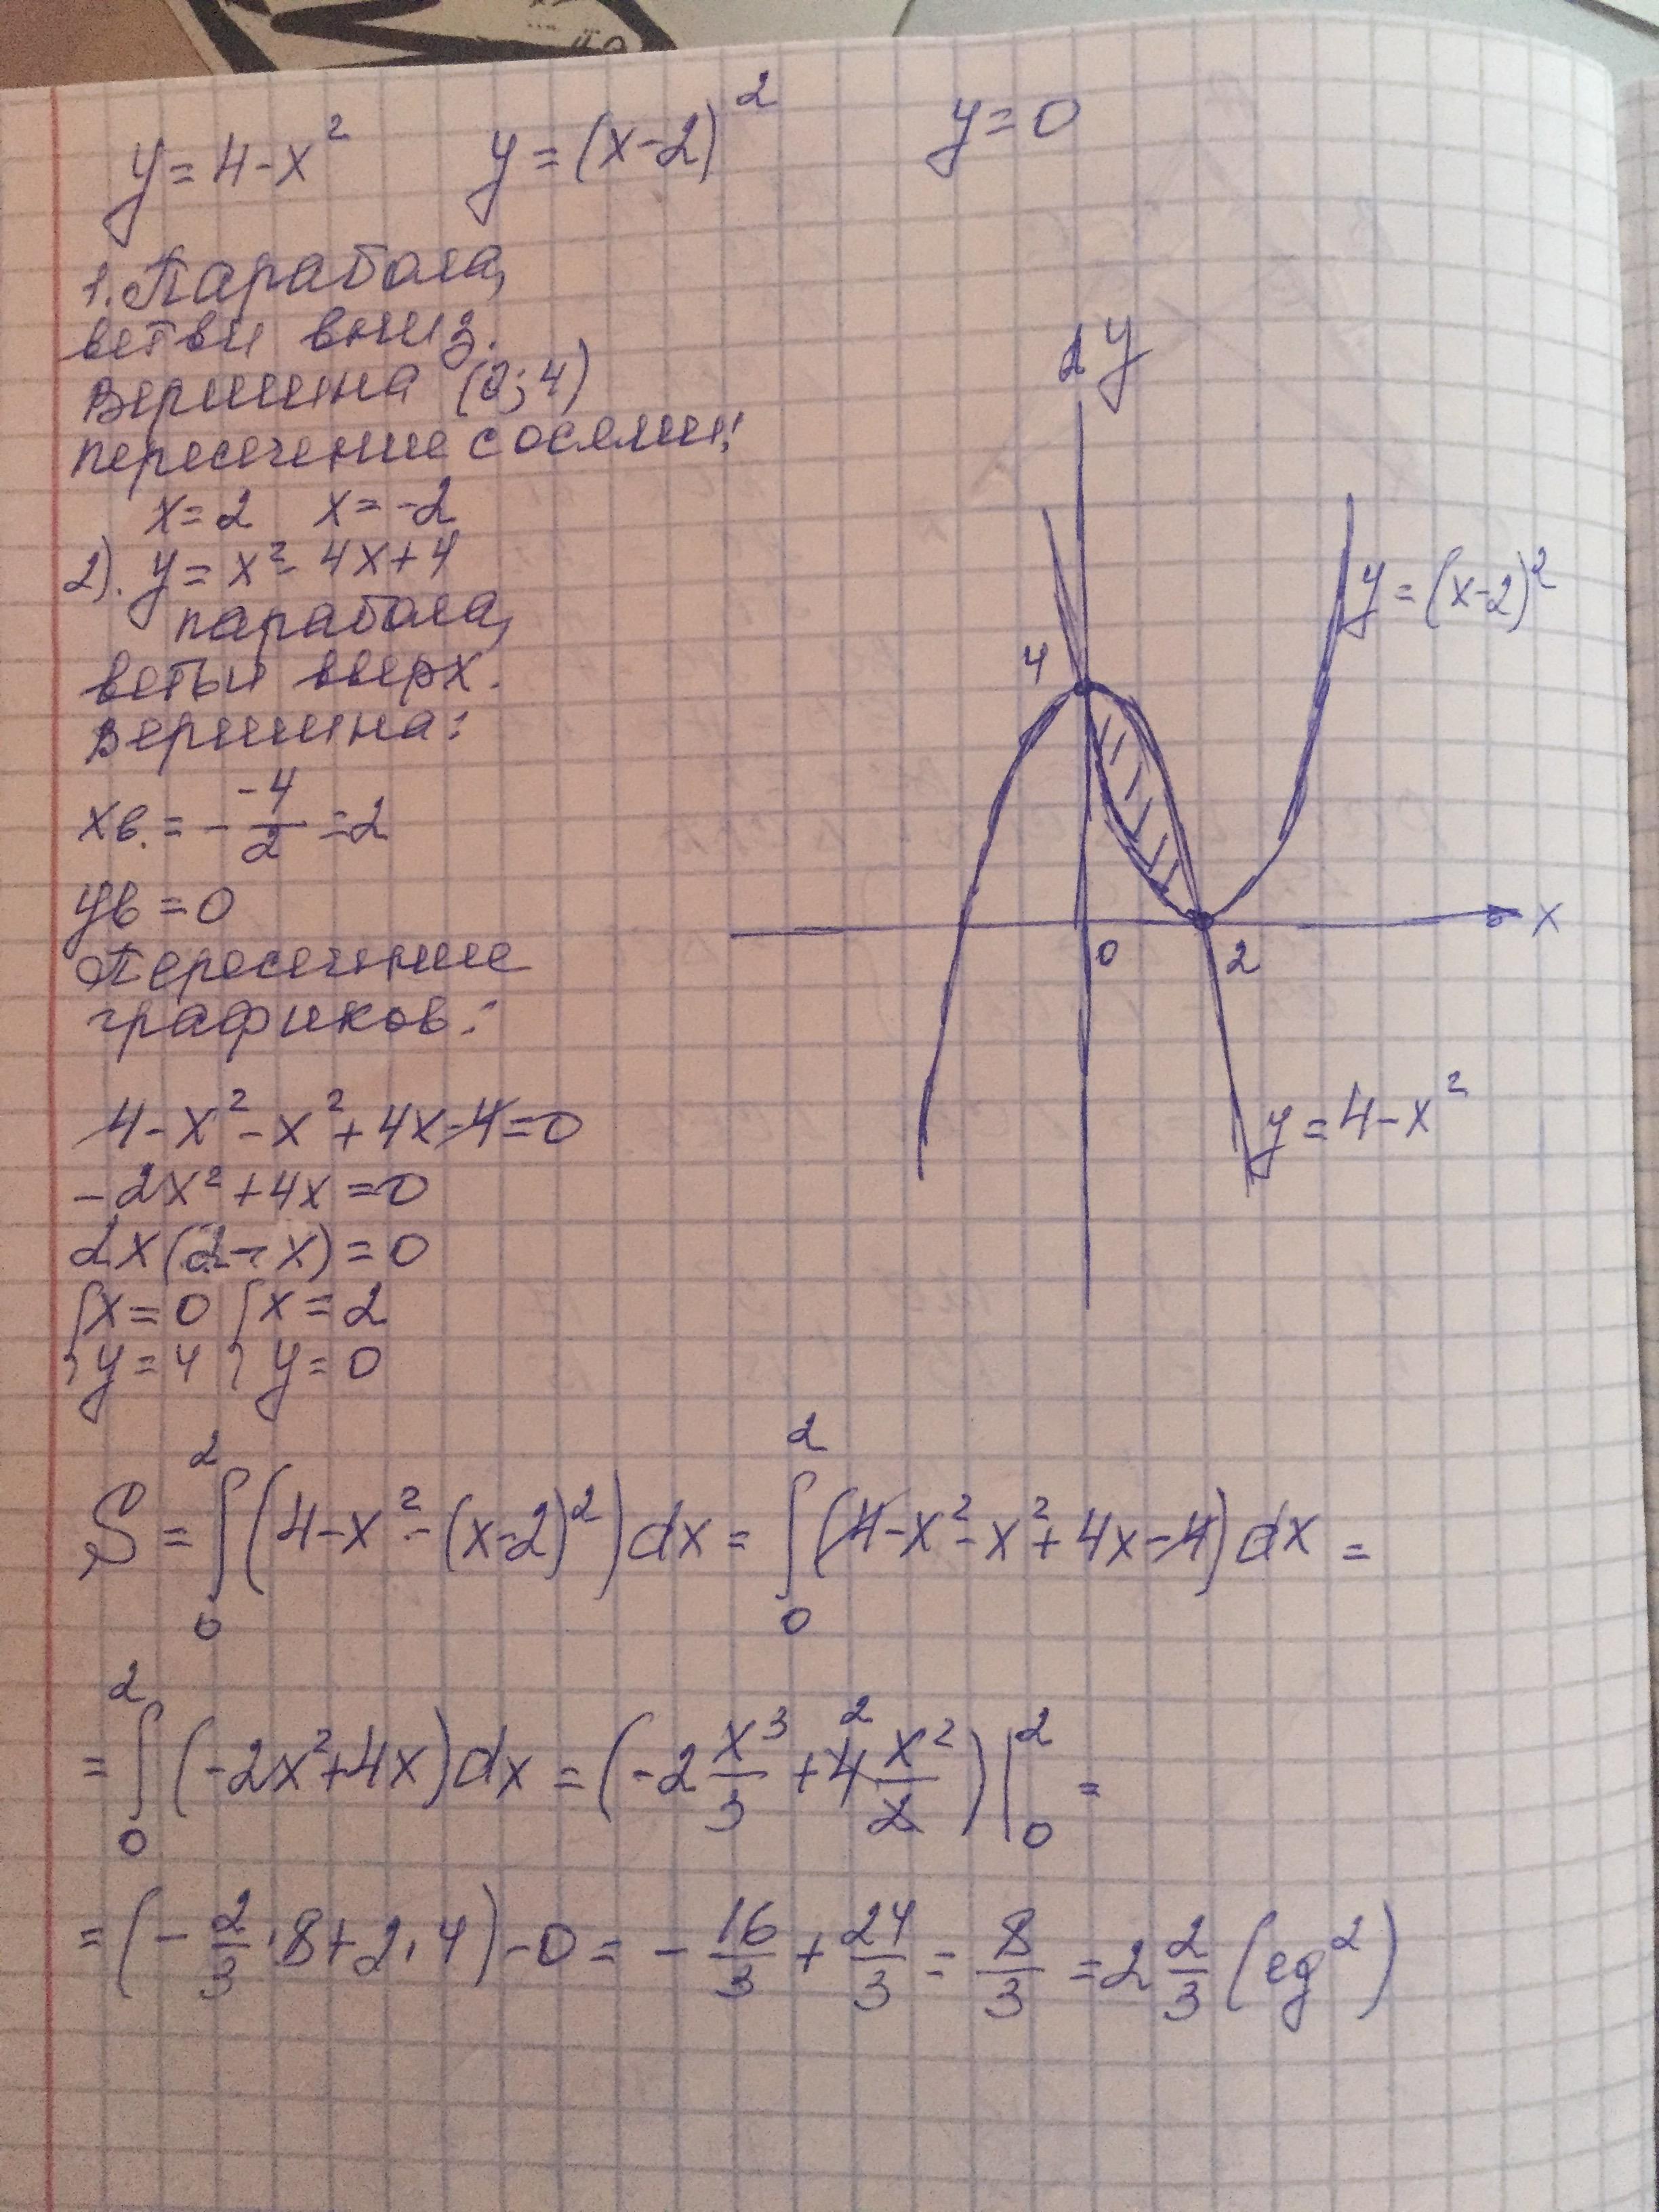 y=4-x² y=(x-2)² y=0
1. Парабола,
ветви вниз.
Вершина (0;4)
пересечение с осями:
x=2 x=-2
2). y=x²-4x+4
парабола,
ветьи вверх.
Вершина:
xв.=-\frac{-4}{2}=2
yв=0
Пересечение
графиков:
4-x²-x²+4x-4=0
-2x²+4x=0
2x(2-x)=0
{x=0 {x=2
{y=4 {y=0
y
y=(x-2)²
4
x
0 2
y=4-x²
S=∫₀²(4-x²-(x-2)²)dx=∫₀²(4-x²-x²+4x-4)dx=
=∫₀²(-2x²+4x)dx=(-2\frac{x³}{3}+4\frac{x²}{2})|₀²=
=(-\frac{2}{3}·8+2·4)-0=-\frac{16}{3}+\frac{24}{3}=\frac{8}{3}=2\frac{2}{3}(eg²)